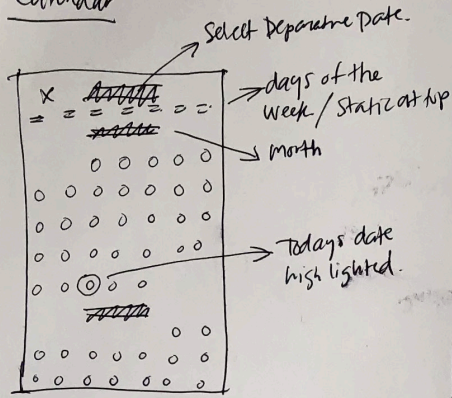 Calendar
Select Deparature Date.
X
days of the
week / Static at top
month
Todays date
highlighted.